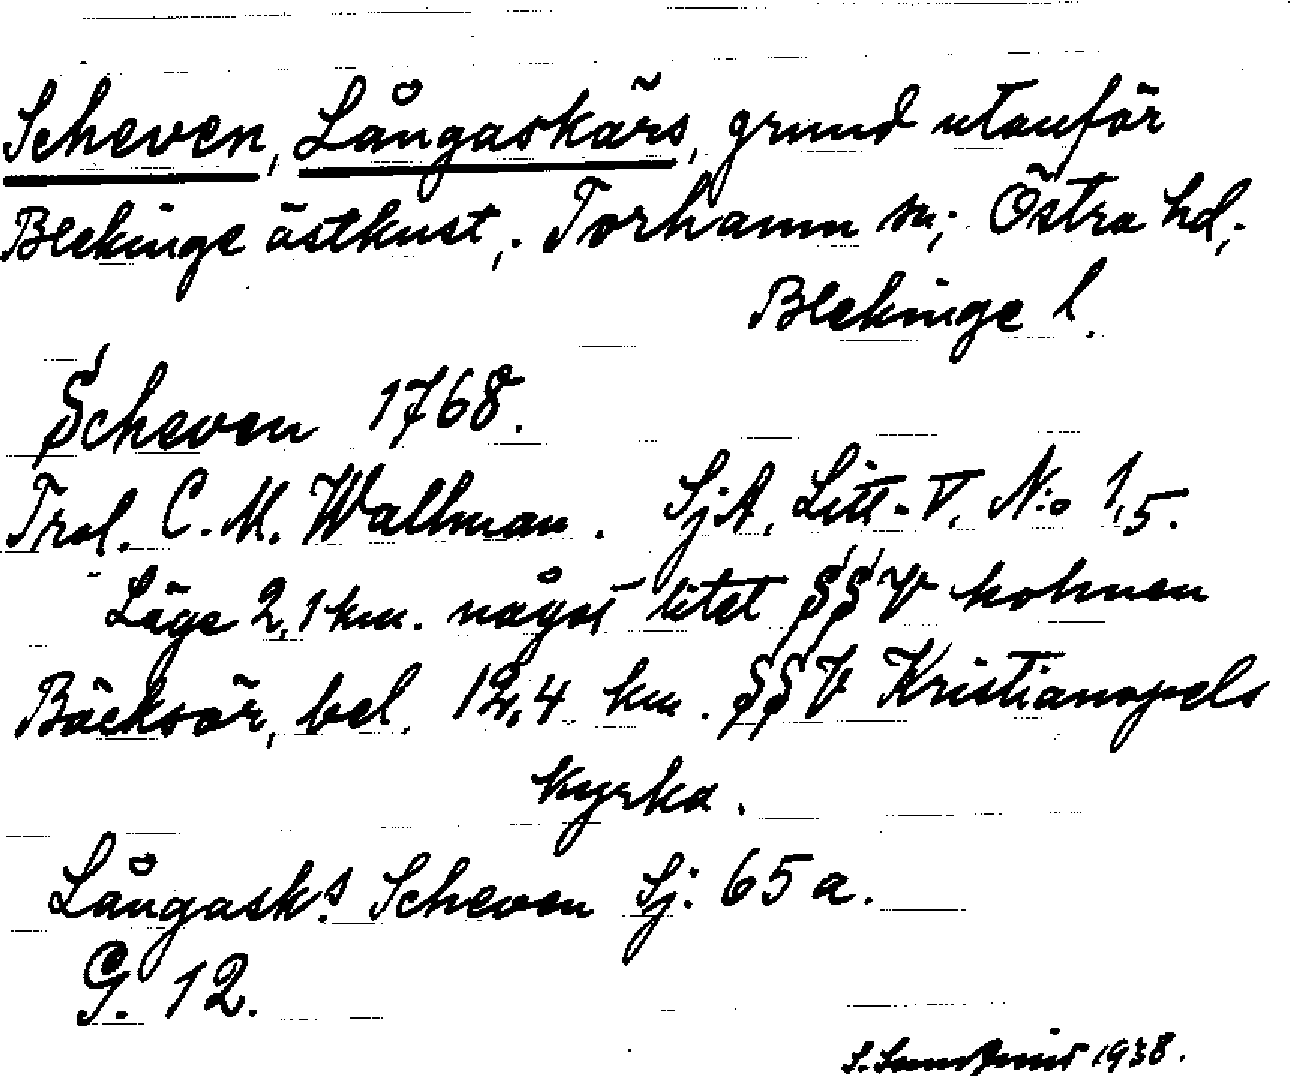 Scheven, Långaskärs, grund utanför
Blekinge östkust, Torhamn sn; Östra hd;
Blekinge l.
Scheven 1768.
Trol. C. M. Wallman. SjA, Litt. V. N:o 1,5.
Läge 2,1 km. något litet SSV holmen
Bäcksör, bel. 12,4 km. SSV Kristianopels
kyrka.
Långask:s Scheven Sj: 65 a.
G. 12.
S. 1938.